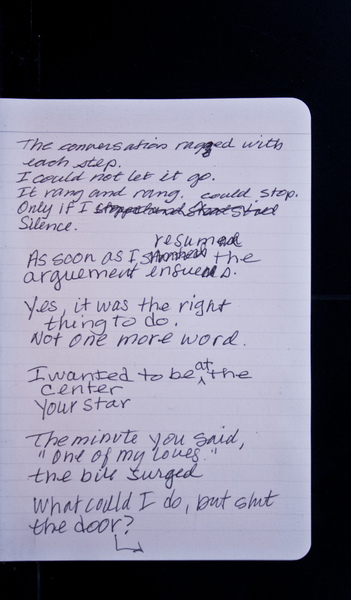 The conversation ragged with
each step.
I could not let it go.
It rang and rang. could stop.
Only if I
Silence.
resumed
As soon as I the
arguement ensued.
Yes, it was the right
thing to do.
Not one more word.
at
I wanted to be ^ the
center
your star
The minute you said,
"one of my loves"
the bile surged
What could I do, but shut
the door?